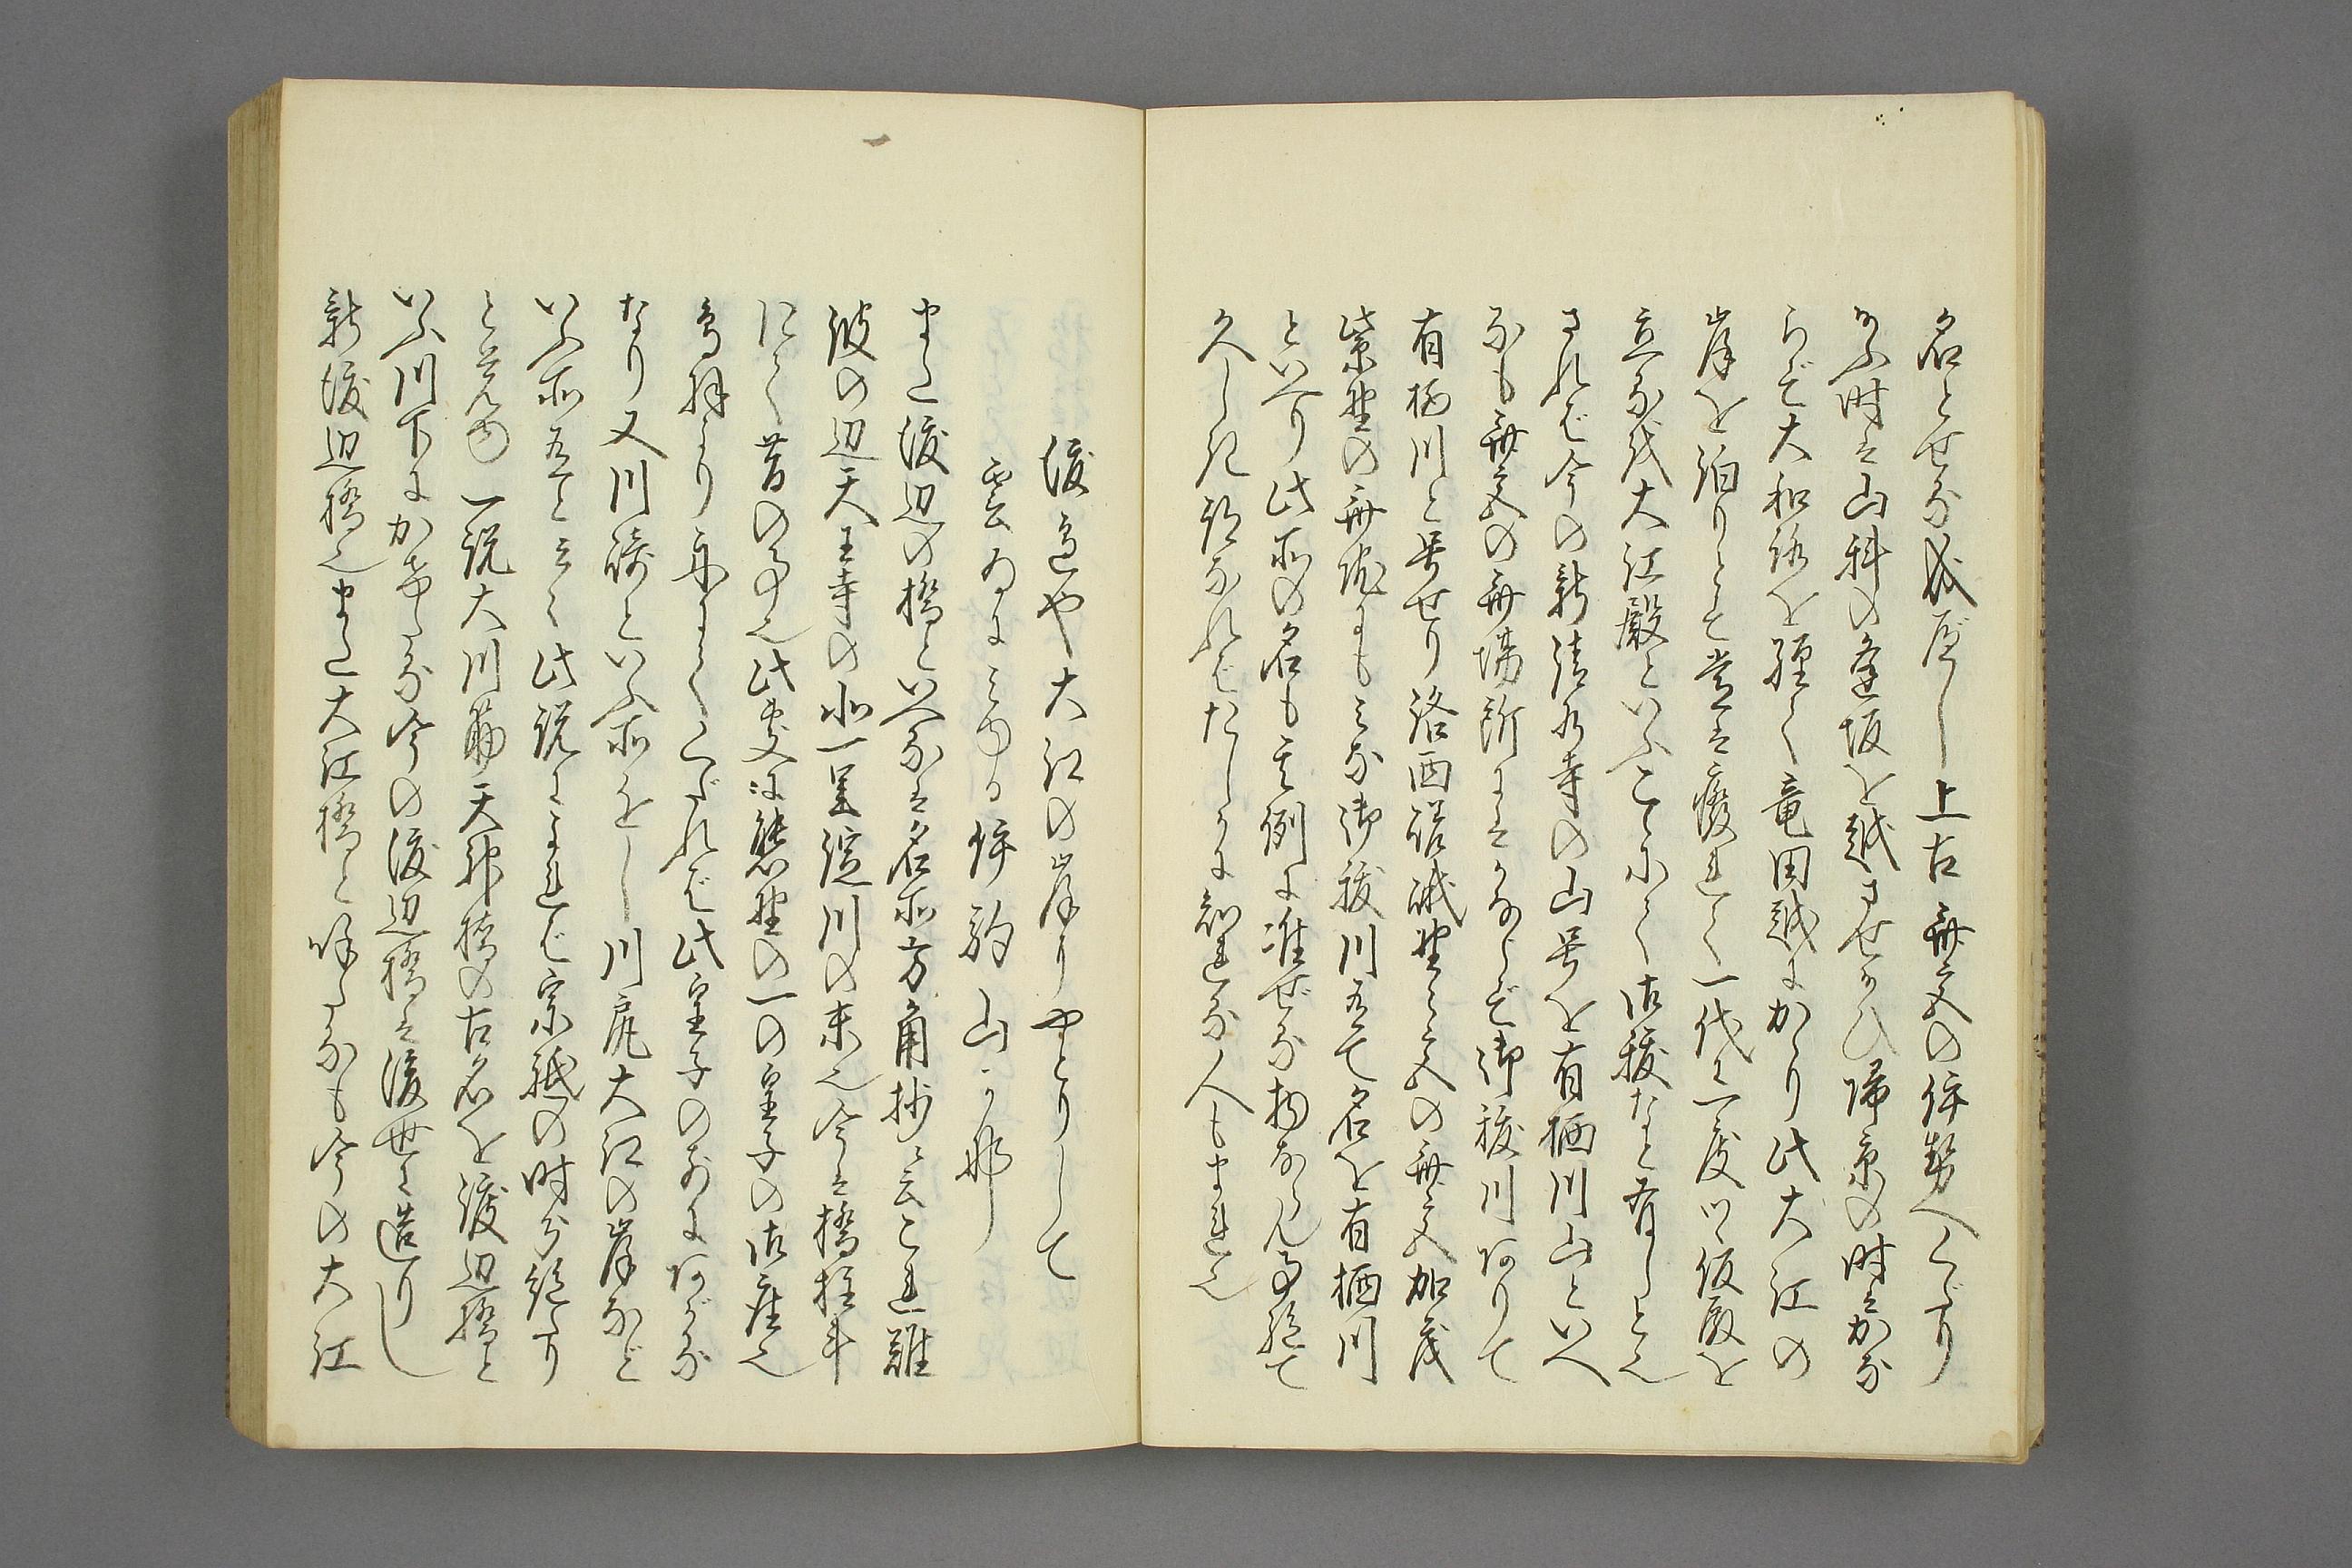 名とせる成べし上古斎宮の伊勢へくだり
給ふ時は山科の逢坂を越させ給ひ帰京の時はかな
らず大和路を経て竜田越にかゝり此大江の
岸を泊りとして営は痩れて一代に一度ツヽ仮殿を
立るを大江殿といふこゝにて御祓など有しと也
されば今の新清水寺の山号を有栖川山といへ
るも斎宮の斎場所にはかならず御祓川ありて
有栖川と号せり洛西嵯峨野々宮の斎宮加茂
紫野の斎院にもみな御祓川有て名を有栖川
といへり此所の名も其例に准ぜる物ならん事絶て
久しき説なればたしかに知れる人もまれ也
渡辺や大江の岸にやどりして
雲ゐにみゆる伊駒山かな
また渡辺の橋といへるは名所方角抄ニ云これ難
波の辺天王寺の北一里淀川の末也今は橋柱斗
にて昔の事也此処は熊野の一の皇子の御座也
鳥羽より舟にてくだれば此皇子の前にあがる
なり又川崎といふ所をし川尻大江の岸など
いふ所有と云々此説によれば宗祇の時分絶たり
と見ゆ一説大川筋天神橋の古名を渡辺橋と
いふ川下にかけたる今の渡辺橋は後世ニ造りし
新渡辺橋也また大江橋と呼たるも今の大江